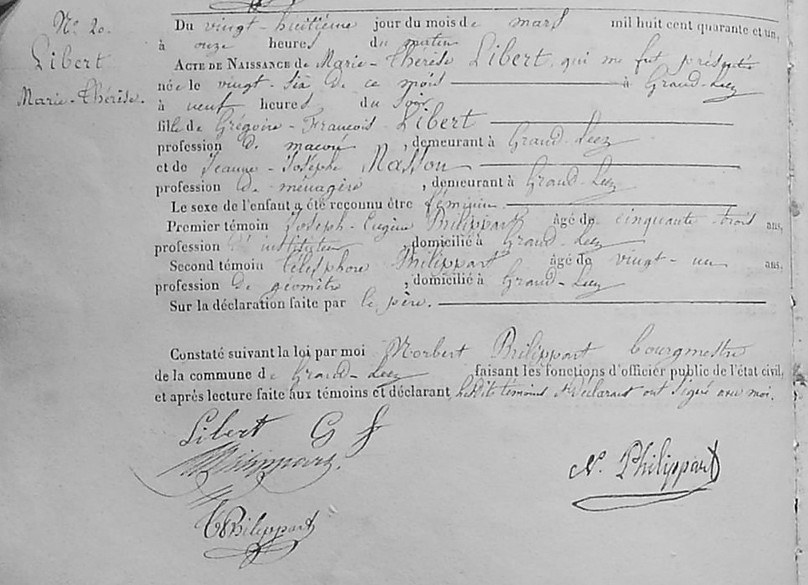 N° 20.
Libert
Marie-Thérèse.
Du vingt-huitième jour du mois de mars mil huit cent quarante et un,
à onze heures du matin
ACTE DE NAISSANCE de Marie-Thérèse Libert, qui me fut présentée
née le vingt-six de ce mois à Grand-Leez
à neuf heures du soir
fille de Grégoire-François Libert
profession de maçon, demeurant à Grand-Leez
et de Jeanne-Josèphe Masson
profession de ménagère, demeurant à Grand-Leez
Le sexe de l'enfant a été reconnu être féminin
Premier témoin Joseph-Eugène Philippart âgé de cinquante trois ans,
profession d'instituteur, domicilié à Grand-Leez
Second témoin Télesphore Philippart âgé de vingt-un ans.
profession de géomètre, domicilié à Grand-Leez
Sur la déclaration faite par le père.
Constaté suivant la loi par moi Norbert Philippart bourgmestre
de la commune de Grand-Leez faisant les fonctions d'officier public de l'état civil,
et après lecture faite aux témoins et déclarant, lesdits témoins & déclarant ont signé avec moi.
Libert G f
Philippart.
N. Philippart
T Philippart